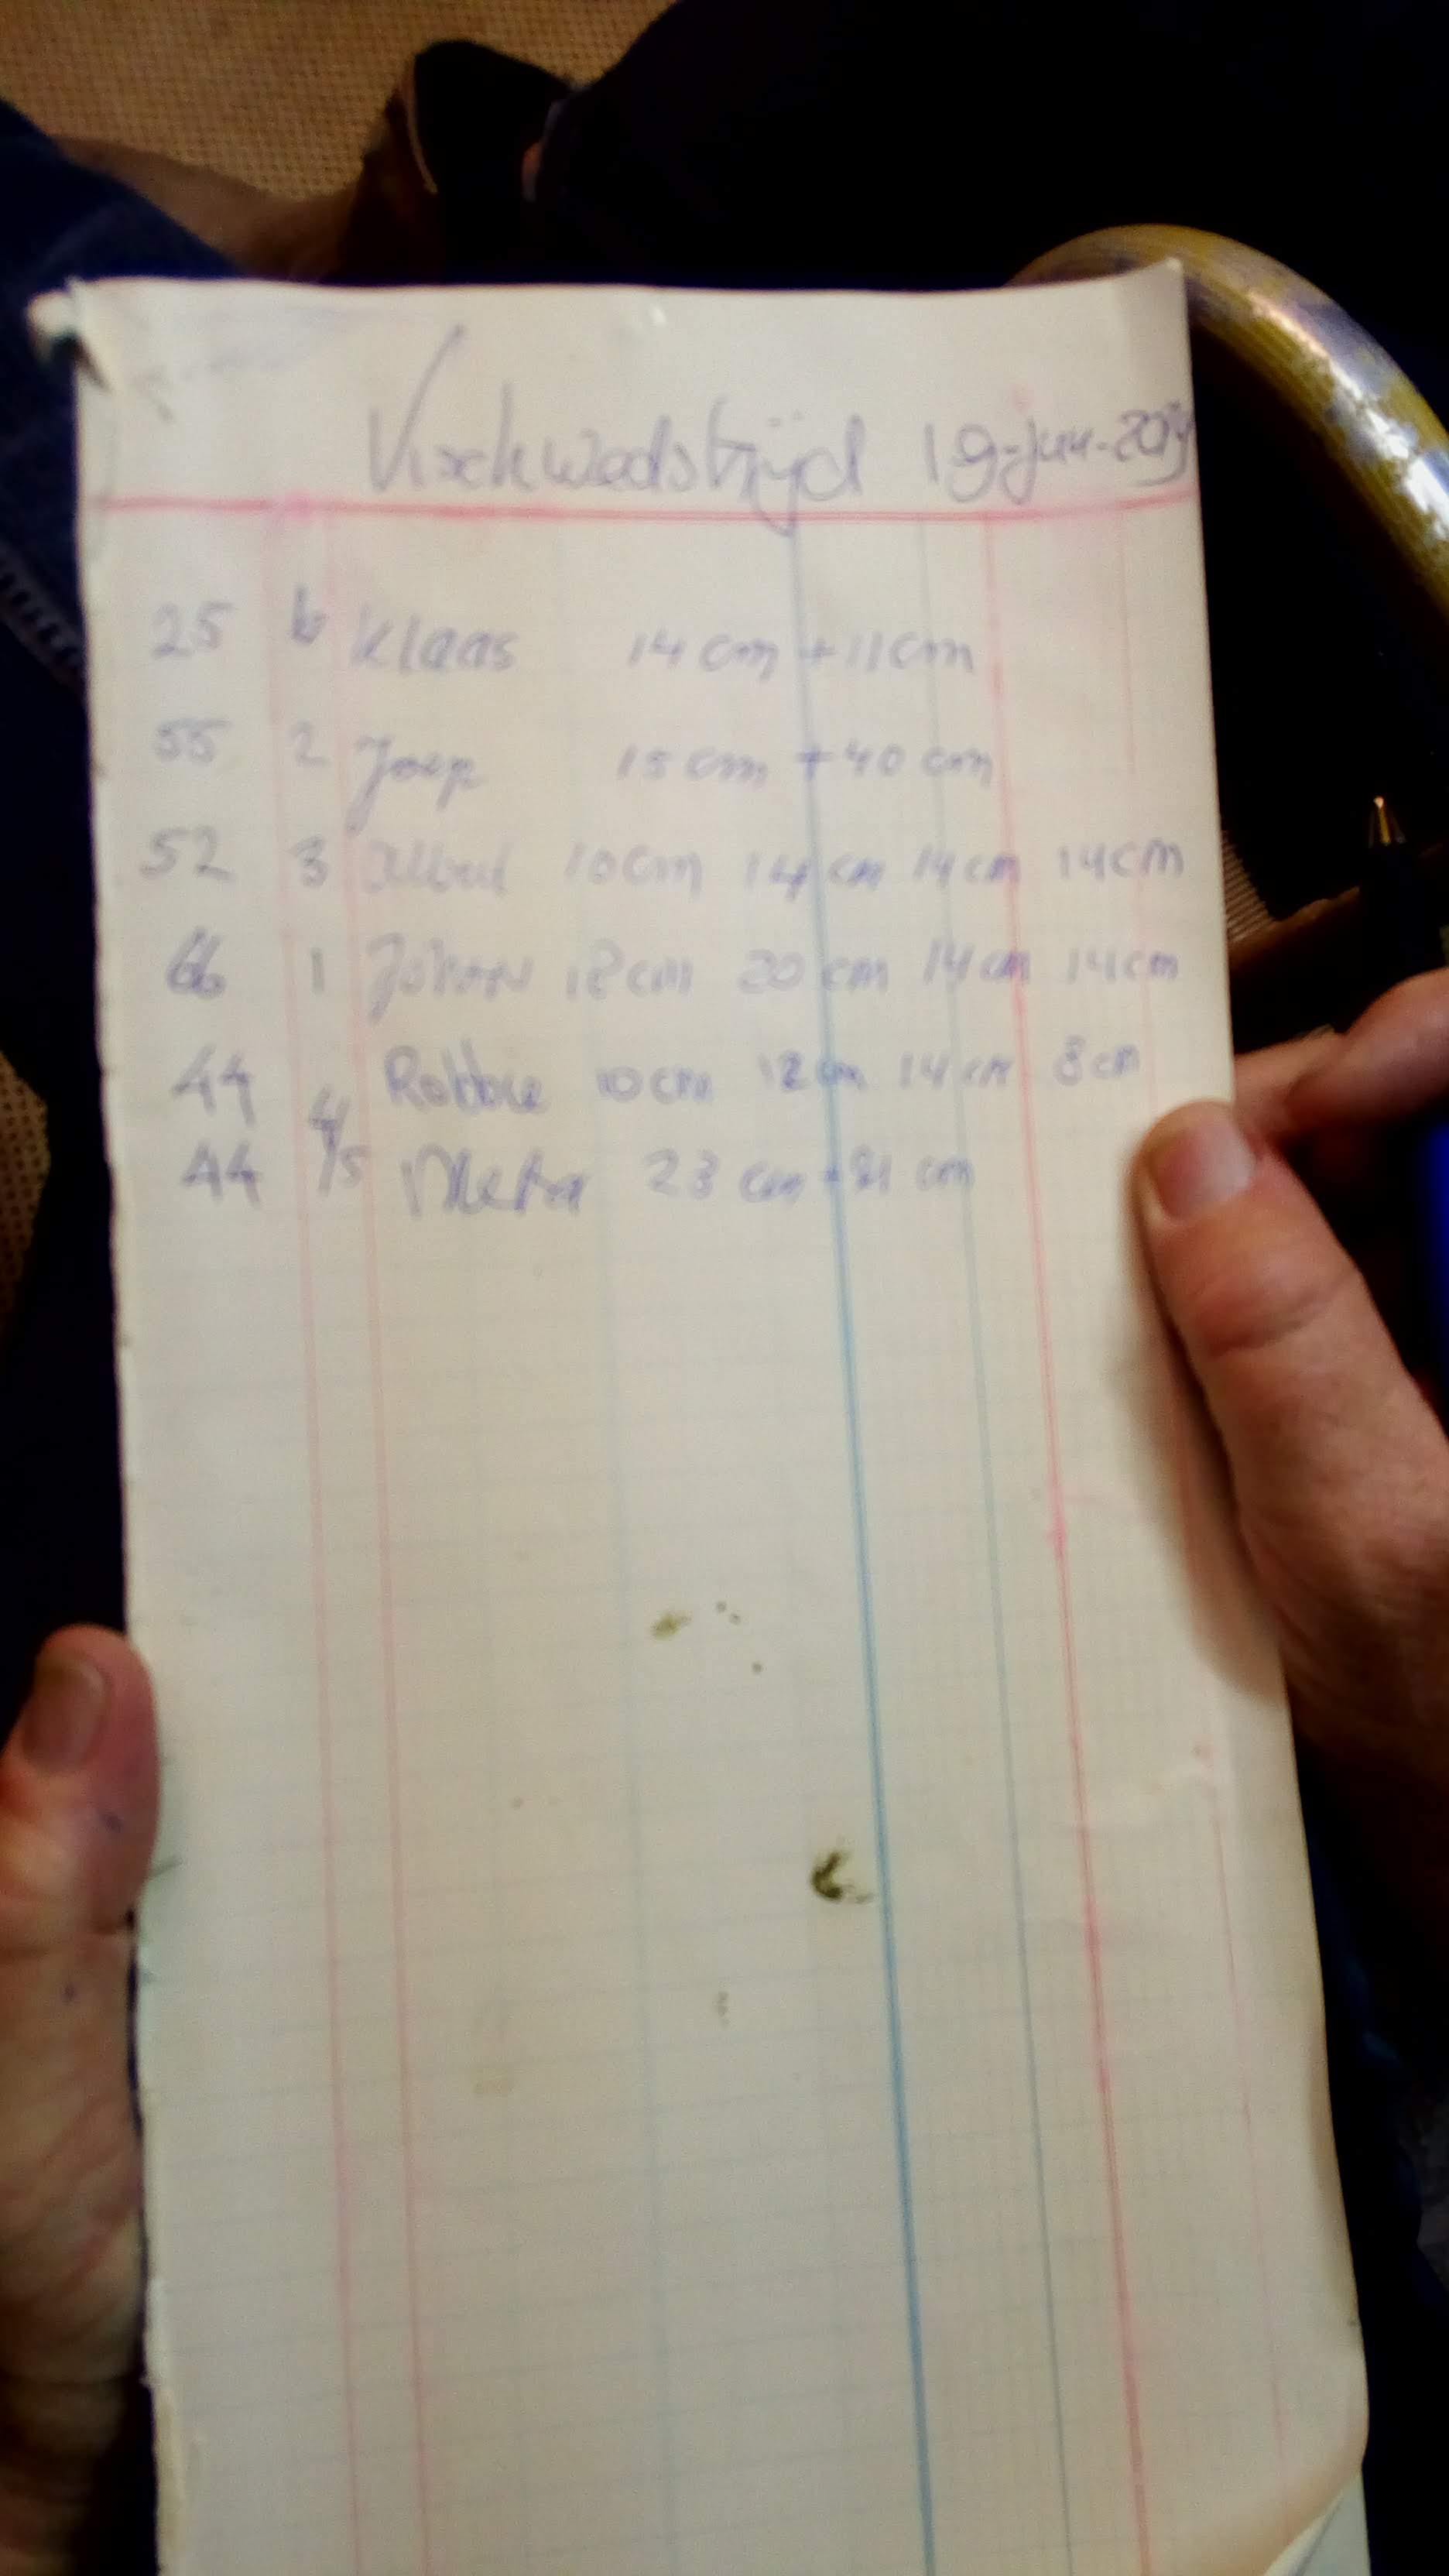 Vischwedstrijd 19-jun-
25 6 Klaas 14 cm + 11 cm
55 2 Joep 15 cm + 40 cm
52 3 Albert 10 cm 14 cm 14 cm 14 cm
66 1 Johan 18 cm 20 cm 14 cm 14 cm
44 Robbie 10 cm 12 cm 14 cm 8 cm
44 4/5 23 cm + 21 cm